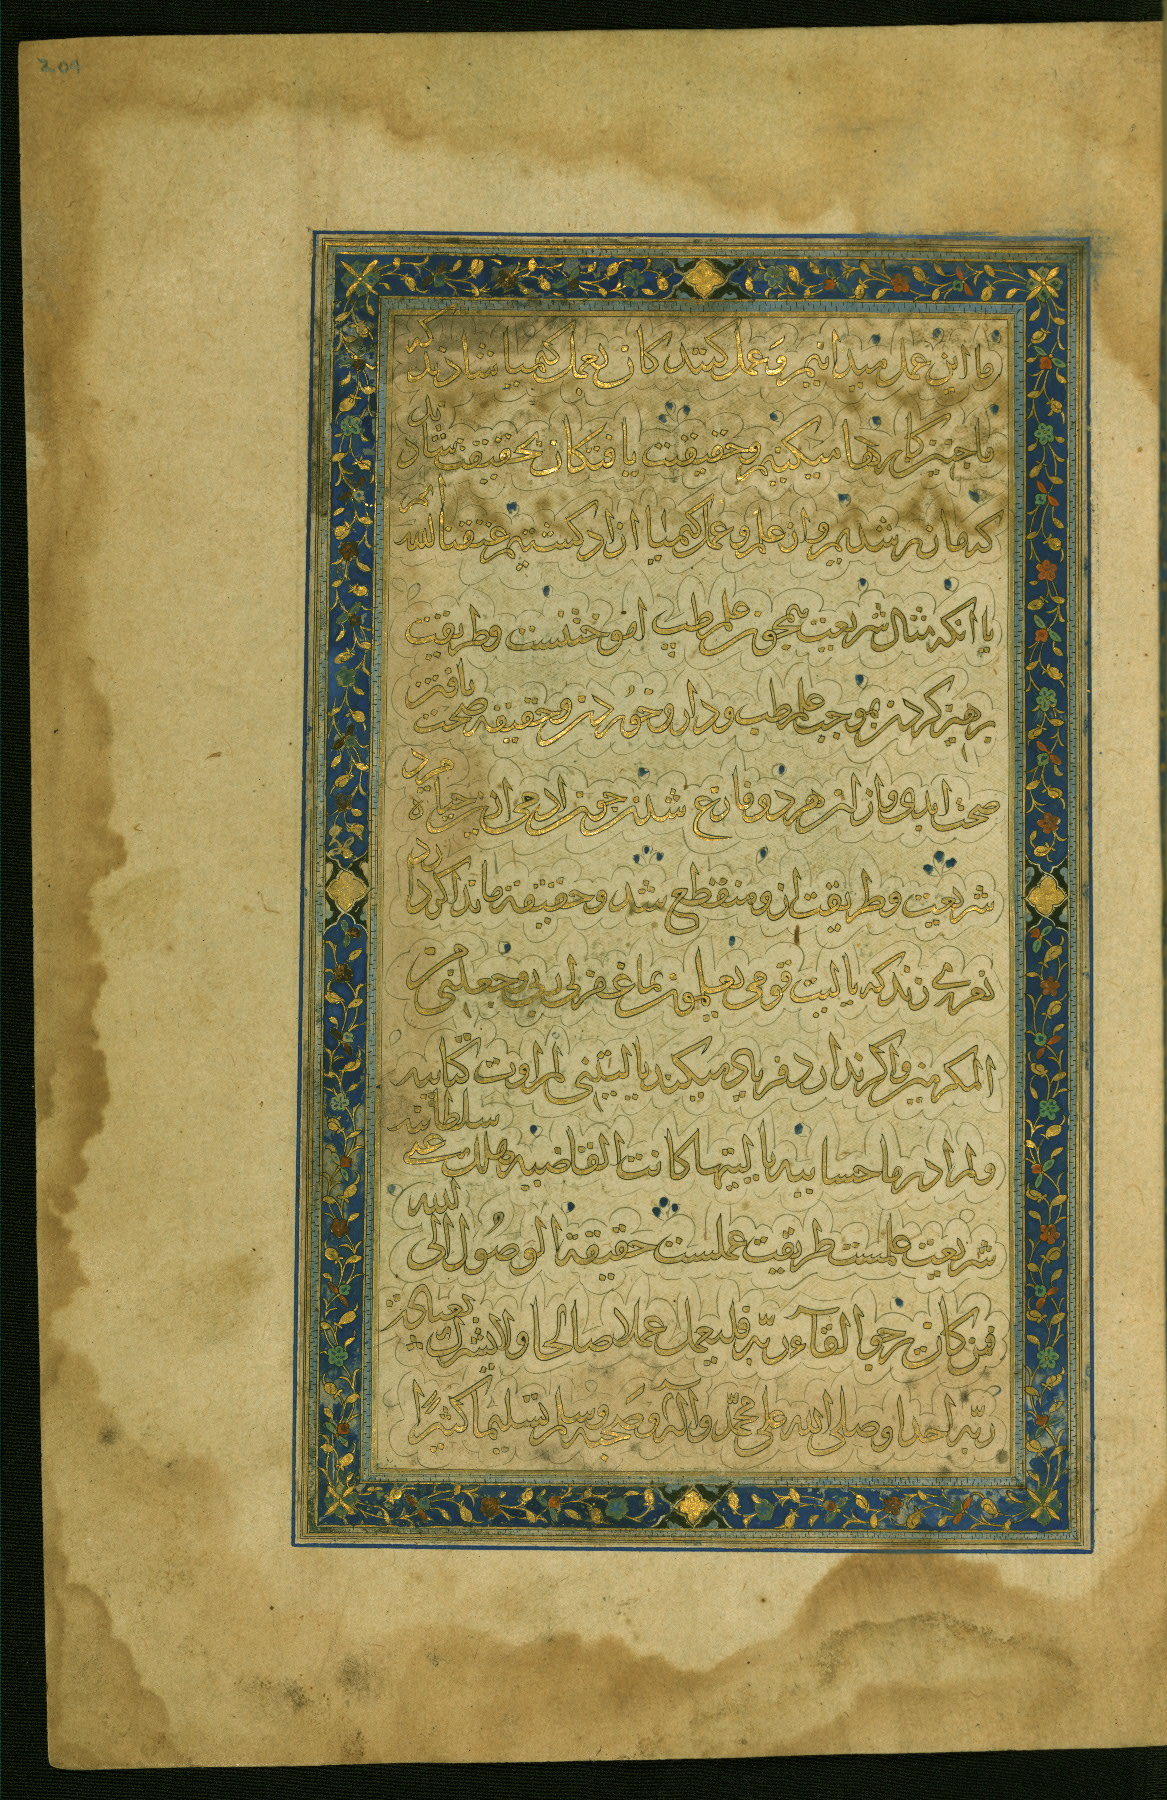 204
ما این عمل میدانیم و عمل کنندکان بعمل کیمیا شادند که
ما چنین کارها میکنیم و حقیقت یافتکان بحقیقت شادند
که ما زر شدیم و از علم و عمل کیمیا ازاد کشتیم عتقنا الله ایم
یا انکه مثال شریعت همچون علم طب اموختنست و طریقت
برهیز کردن بموجب علم طب و دارو خوردن و حقیقة صحت یافتن
صحت ابدی و از ان هر دو فارغ شدن چون ادمی ازین حیاة مرد
شریعت و طریقت ازو منقطع شد و حقیقة ماند اکر دارد
نعره می زند که یا لیت قومی یعلمون بما غفر لی ربی و جعلنی من
المکرمین و اکر ندارد فریاد میکند یا لیتنی لم اوت کتابیه
و لم ادر ما حسابیه یا لیتها کانت القاضیه هلك عنی سلطانیه
شریعت علمست طریقت عملست حقیقة الوصول الی الله
فمن کان یرجوا لقآء ربّه فلیعمل عملا صالحا ولا یشرك بعبادة
ربّه احدا وصلی الله علی محمّد وآله وصحبه وسلم تسلیما کثیرًا